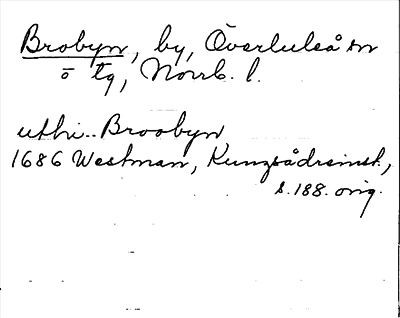 Brobyn, by, Överluleå sn
o tg, Norrb. l.
uthi.. Broobyn
1686 Westman, Kungsådreinst.,
s. 188. orig.